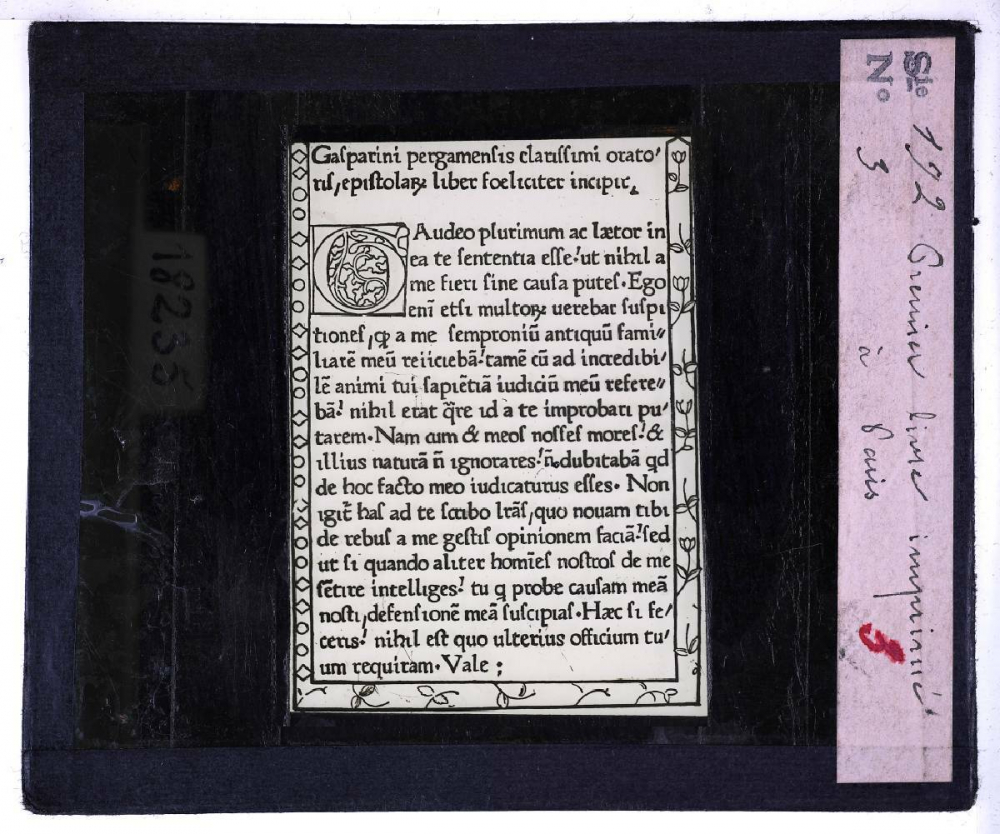 Gasparini pergamensis clarissimi orato'
ris, epistolaꝝ liber foeliciter incipit,
GAudeo plurimum ac lætor in
ea te sententia esse: ut nihil a
me fieri sine causa putes. Ego
enī etsi multoꝝ uerebar suspi
tiones, ꝙ a me semproniū antiquū fami//
liarē meū reiiciebā: tamē cū ad incredibi/
lē animi tui sapiētiā iudiciū meū refere//
bā: nihil erat q̄re id a te improbari pu/
tarem. Nam cum & meos nosses mores: &
illius naturā ñ ignorares: ñ dubitabā qd
de hoc facto meo iudicaturus esses. Non
igit̄ has ad te scribo lr̄as, quo nouam tibi
de rebus a me gestis opinionem faciā: sed
ut si quando aliter homīes nostros de me
sētire intelliges: tu q probe causam meā
nosti, defensionē meā suscipias. Hæc si fe/
ceris: nihil est quo ulterius officium tu/
um requiram. Vale ;
Sie 192 Premier livre imprimé
No 3 à Paris
3
18235